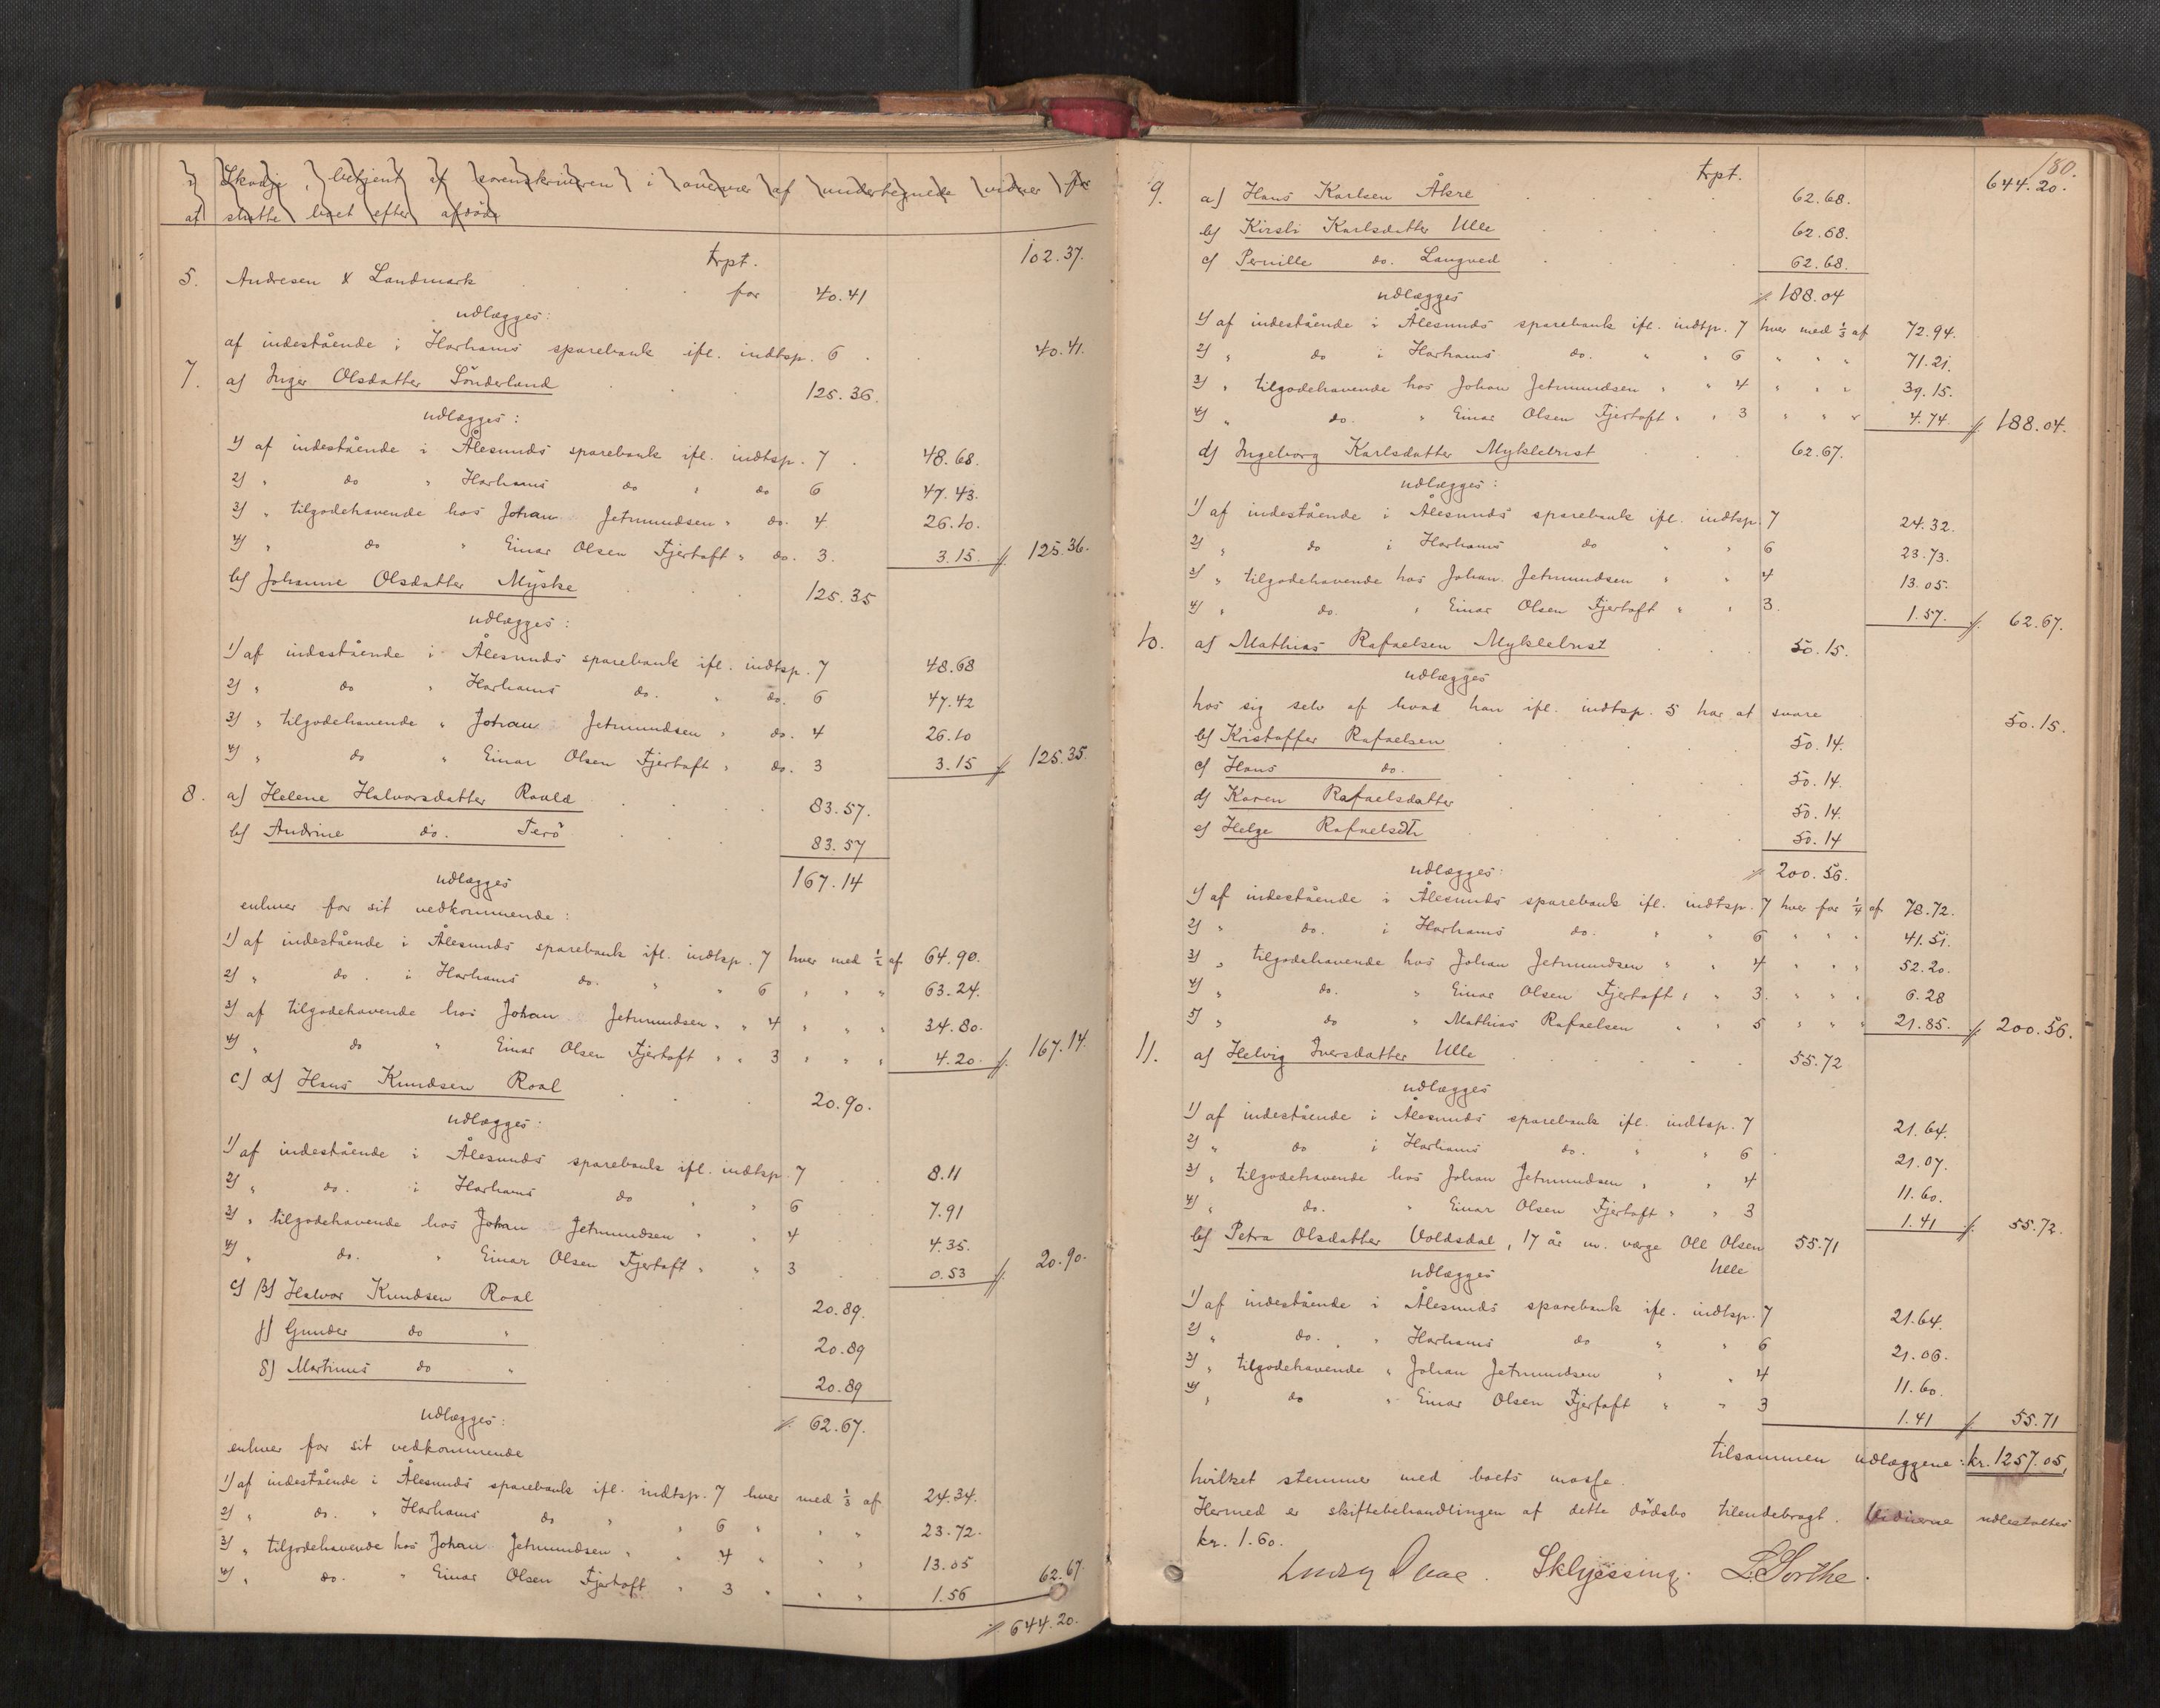 i Skodje, betjent af sorenskriveren i overvær af undertegnede vidner for
at slutte boet efter afdøde
trpt. 102.37.
5. Andresen & Landmark for 40.41
udlægges:
af indestående i Harhams sparebank ifl. indtsp. 6 . . 40.41.
7. a) Inger Olsdatter Sönderland . . 125.36.
udlægges:
1) af indestående i Ålesunds sparebank ifl. indtsp. 7 . 48.68.
2) " do " Harhams do " do 6 47.43.
3) " tilgodehavende hos Johan Jetmundsen " do. 4 26.10.
4) " do " Einar Olsen Fjertoft " do. 3. 3.15 // 125.36.
b) Johanne Olsdatter Myske . . . 125.35
udlægges:
1) af indestående i Ålesunds sparebank ifl. indtsp. 7 48.68
2) " do " Harhams do. " do. 6 47.42
3) " tilgodehavende " Johan Jetmundsen " do. 4 26.10
4) " do " Einar Olsen Fjertoft " do. 3 3.15 // 125.35.
8. a) Helene Halvorsdatter Roald . . . 83.57.
b) Andrine do. Terö . . . 83.57
udlægges 167.14
enhver for sit vedkommende:
1) af indestående i Ålesunds sparebank ifl. indtsp. 7 hver med ½ af 64.90.
2) " do. i Harhams do. " " 6 " " " 63.24.
3) af tilgodehavende hos Johan Jetmundsen " " 4 " " " 34.80.
4) " do " Einar Olsen Fjertoft " " 3 " " " 4.20. // 167.14.
c) α) Hans Knudsen Roal . . . 20.90.
udlægges:
1) af indestående i Ålesunds sparebank ifl. indtsp. 7 . . 8.11
2) " do. i Harhams do " " 6 . . 7.91
3) " tilgodehavende hos Johan Jetmundsen " " 4 . 4.35.
4) " do. " Einar Olsen Fjertoft " " 3 . 0.53 // 20.90.
c) β) Halvor Knudsen Roal . . . 20.89.
γ) Gunder do " . . . 20.89
δ) Martinus do " . . . 20.89
udlægges: // 62.67.
enhver for sit vedkommende
1) af indestående i Ålesunds sparebank ifl. indtsp. 7 hver med ⅓ af 24.34.
2) " do. " Harhams do " " 6 " " " 23.72.
3) " tilgodehavende hos Johan Jetmundsen " " 4 " " " 13.05
4) " do. " Einar Olsen Fjertoft " 3 " " " 1.56 62.67.
// 644.20.
180.
trpt. 644.20.
9. a) Hans Karlsen Åkre . . . 62.68.
b) Kirsti Karlsdatter Ulle . . . 62.68.
c) Pernille do. Langved . . . 62.68.
udlægges // 188.04
1) af indestående i Ålesunds sparebank ifl. indtsp. 7 hver med ⅓ af 72.94.
2) " do i Harhams do. " " 6 " " " 71.21.
3) " tilgodehavende hos Johan Jetmundsen " " 4 " " " 39.15.
4) " do. " Einar Olsen Fjertoft " " 3 " " " 4.74 // 188.04.
d) Ingeborg Karlsdatter Myklebust . . 62.67.
udlægges:
1) af indestående i Ålesunds sparebank ifl. indtsp. 7 24.32.
2) " do i Harhams do " " 6 23.73.
3) " tilgodehavende hos Johan Jetmundsen " " 4 13.05.
4) " do. " Einar Olsen Fjertoft " " 3. 1.57. // 62.67.
10. a) Mathias Rafaelsen Myklebust . . 50.15.
udlægges
hos sig selv af hvad han ifl. indtsp. 5 har at svare 50.15.
b) Kristoffer Rafaelsen . . . 50.14.
c) Hans do. . . . 50.14.
d) Karen Rafaelsdatter . . 50.14.
e) Helge Rafaelsdtr . . . 50.14
udlægges: // 200.56.
1) af indestående i Ålesunds sparebank ifl. indtsp. 7 hver for ¼ af 78.72.
2) " do. i Harhams do. " " 6 " " " 41.51.
3) " tilgodehavende hos Johan Jetmundsen " " 4 " " " 52.20.
4) " do. " Einar Olsen Fjertoft " " 3. " " " 6.28
5) " do " Mathias Rafaelsen " " 5 " " " 21.85. // 200.56.
11. a) Helvig Iversdatter Ulle . . . 55.72
udlægges
1) af indestående i Ålesunds sparebank ifl. indtsp. 7 21.64.
2) " do i Harhams do. " " 6 . 21.07.
3) " tilgodehavende hos Johan Jetmundsen " " 4 11.60.
4) " do. " Einar Olsen Fjertoft " " 3 1.41 // 55.72.
b) Petra Olsdatter Voldsdal, 17 år m. værge Ole Olsen 55.71
udlægges Ulle
1) af indestående i Ålesunds sparebank ifl. indtsp. 7 21.64.
2) " do. " Harhams do " " 6 21.06.
3) " tilgodehavende " Johan Jetmundsen " " 4 11.60.
4) " do " Einar Olsen Fjertoft " " 3 1.41 // 55.71
tilsammen udlæggene: kr. 1257.05,
hvilket stemmer med boets masse.
Hermed er skiftebehandlingen af dette dödsbo tilendebragt. Vidnerne udbetaltes
kr. 1.60.